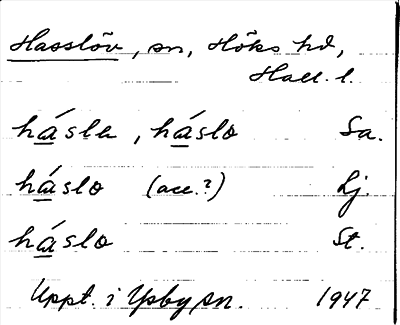 Hasslöv, sn, Höks hd,
Hall. l.
hásle, háslo Sa.
háslo (acc.?) Lj.
háslo St.
Uppt. i Ysby sn. 1947